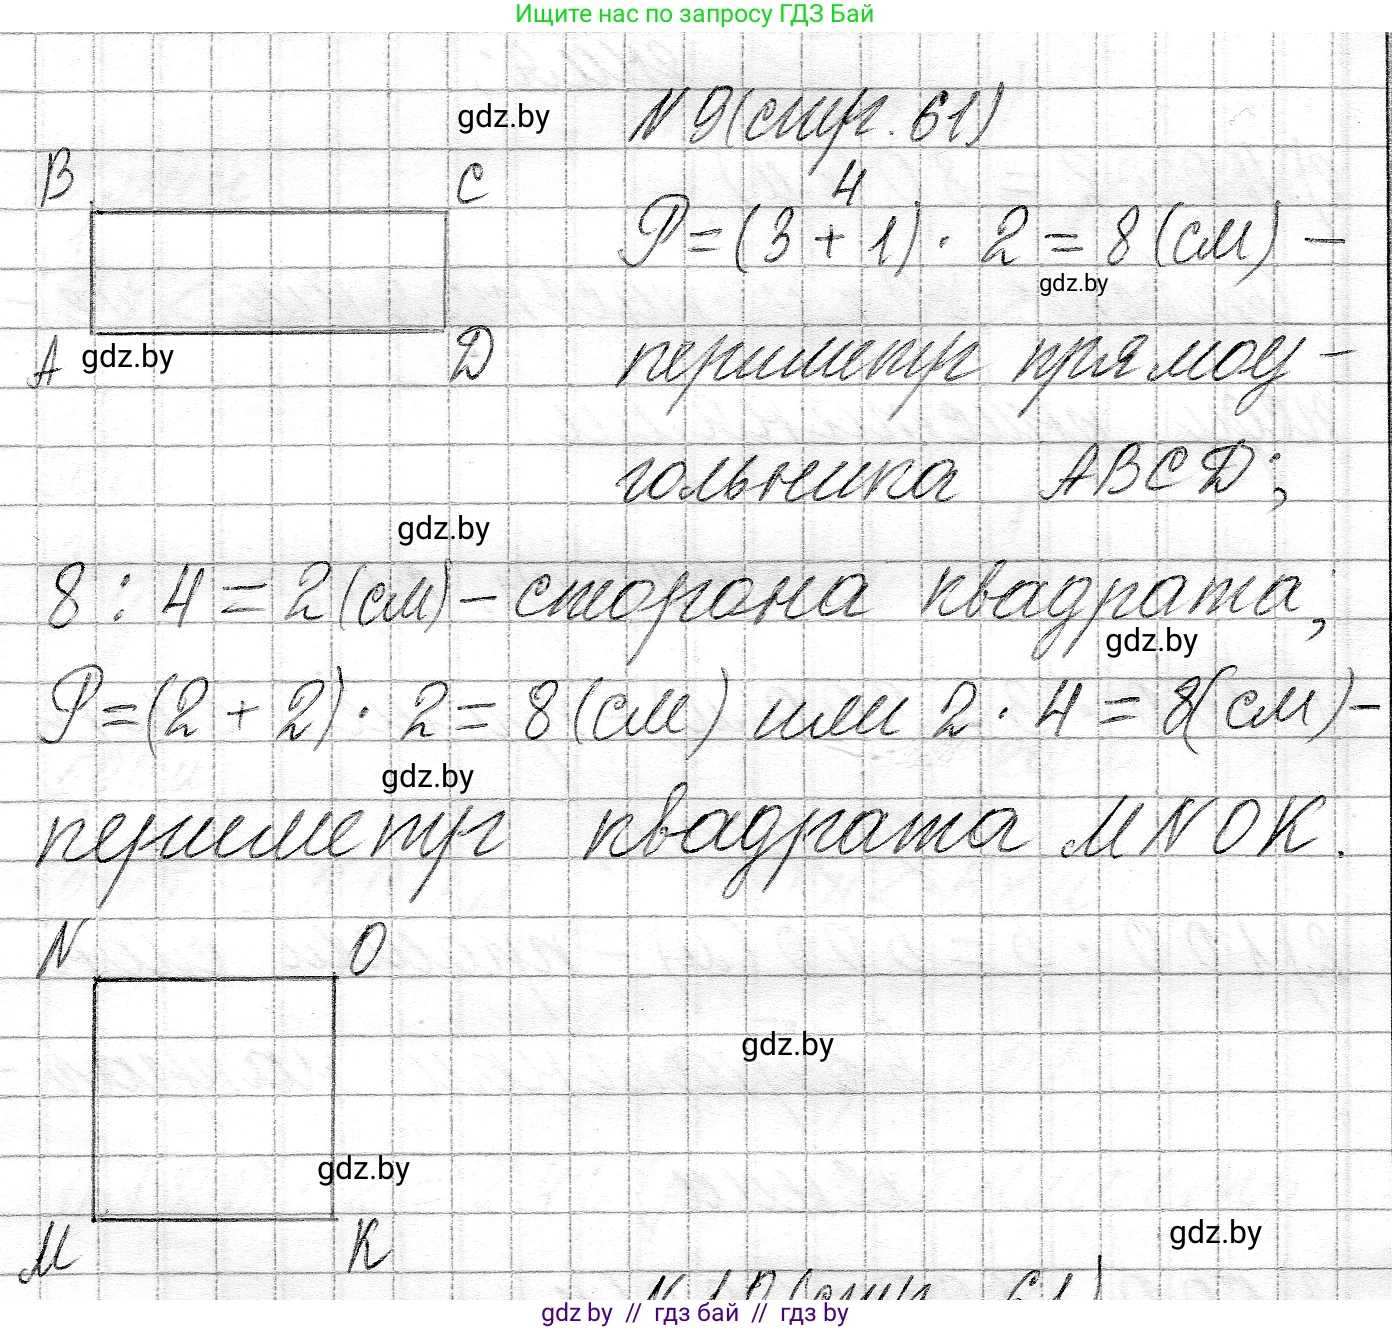 Ищите нас по запросу ГДЗ Бай
gdz.by
N 9 (стр. 61)
B
C
4
P = (3 + 1) · 2 = 8 (см) –
gdz.by
A
gdz.by
D
периметр прямоу-
гольника ABCD;
gdz.by
8 : 4 = 2 (см) – сторона квадрата;
gdz.by
P = (2 + 2) · 2 = 8 (см) или 2 · 4 = 8 (см) –
gdz.by
периметр квадрата MNOK.
N
O
gdz.by
gdz.by
gdz.by
M
K
gdz by // гдз бай // гдз by